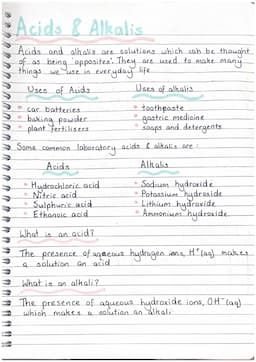 Acids & Alkalis
Acids and alkalis are solutions which can be thought
of as being 'opposites'. They are used to make many
things we use in everyday life
Uses of Acids Uses of alkalis
• car batteries • toothpaste
• baking powder • gastric medicine
• plant fertilisers • soaps and detergents
Some common laboratory acids & alkalis are :
Acids Alkalis
• Hydrochloric acid • Sodium hydroxide
• Nitric acid • Potassium hydroxide
• Sulphuric acid • Lithium hydroxide
• Ethanoic acid • Ammonium hydroxide
What is an acid?
The presence of aqueous hydrogen ions, H⁺(aq) makes
a solution an acid
What is an alkali?
The presence of aqueous hydroxide ions, OH⁻(aq)
which makes a solution an alkali